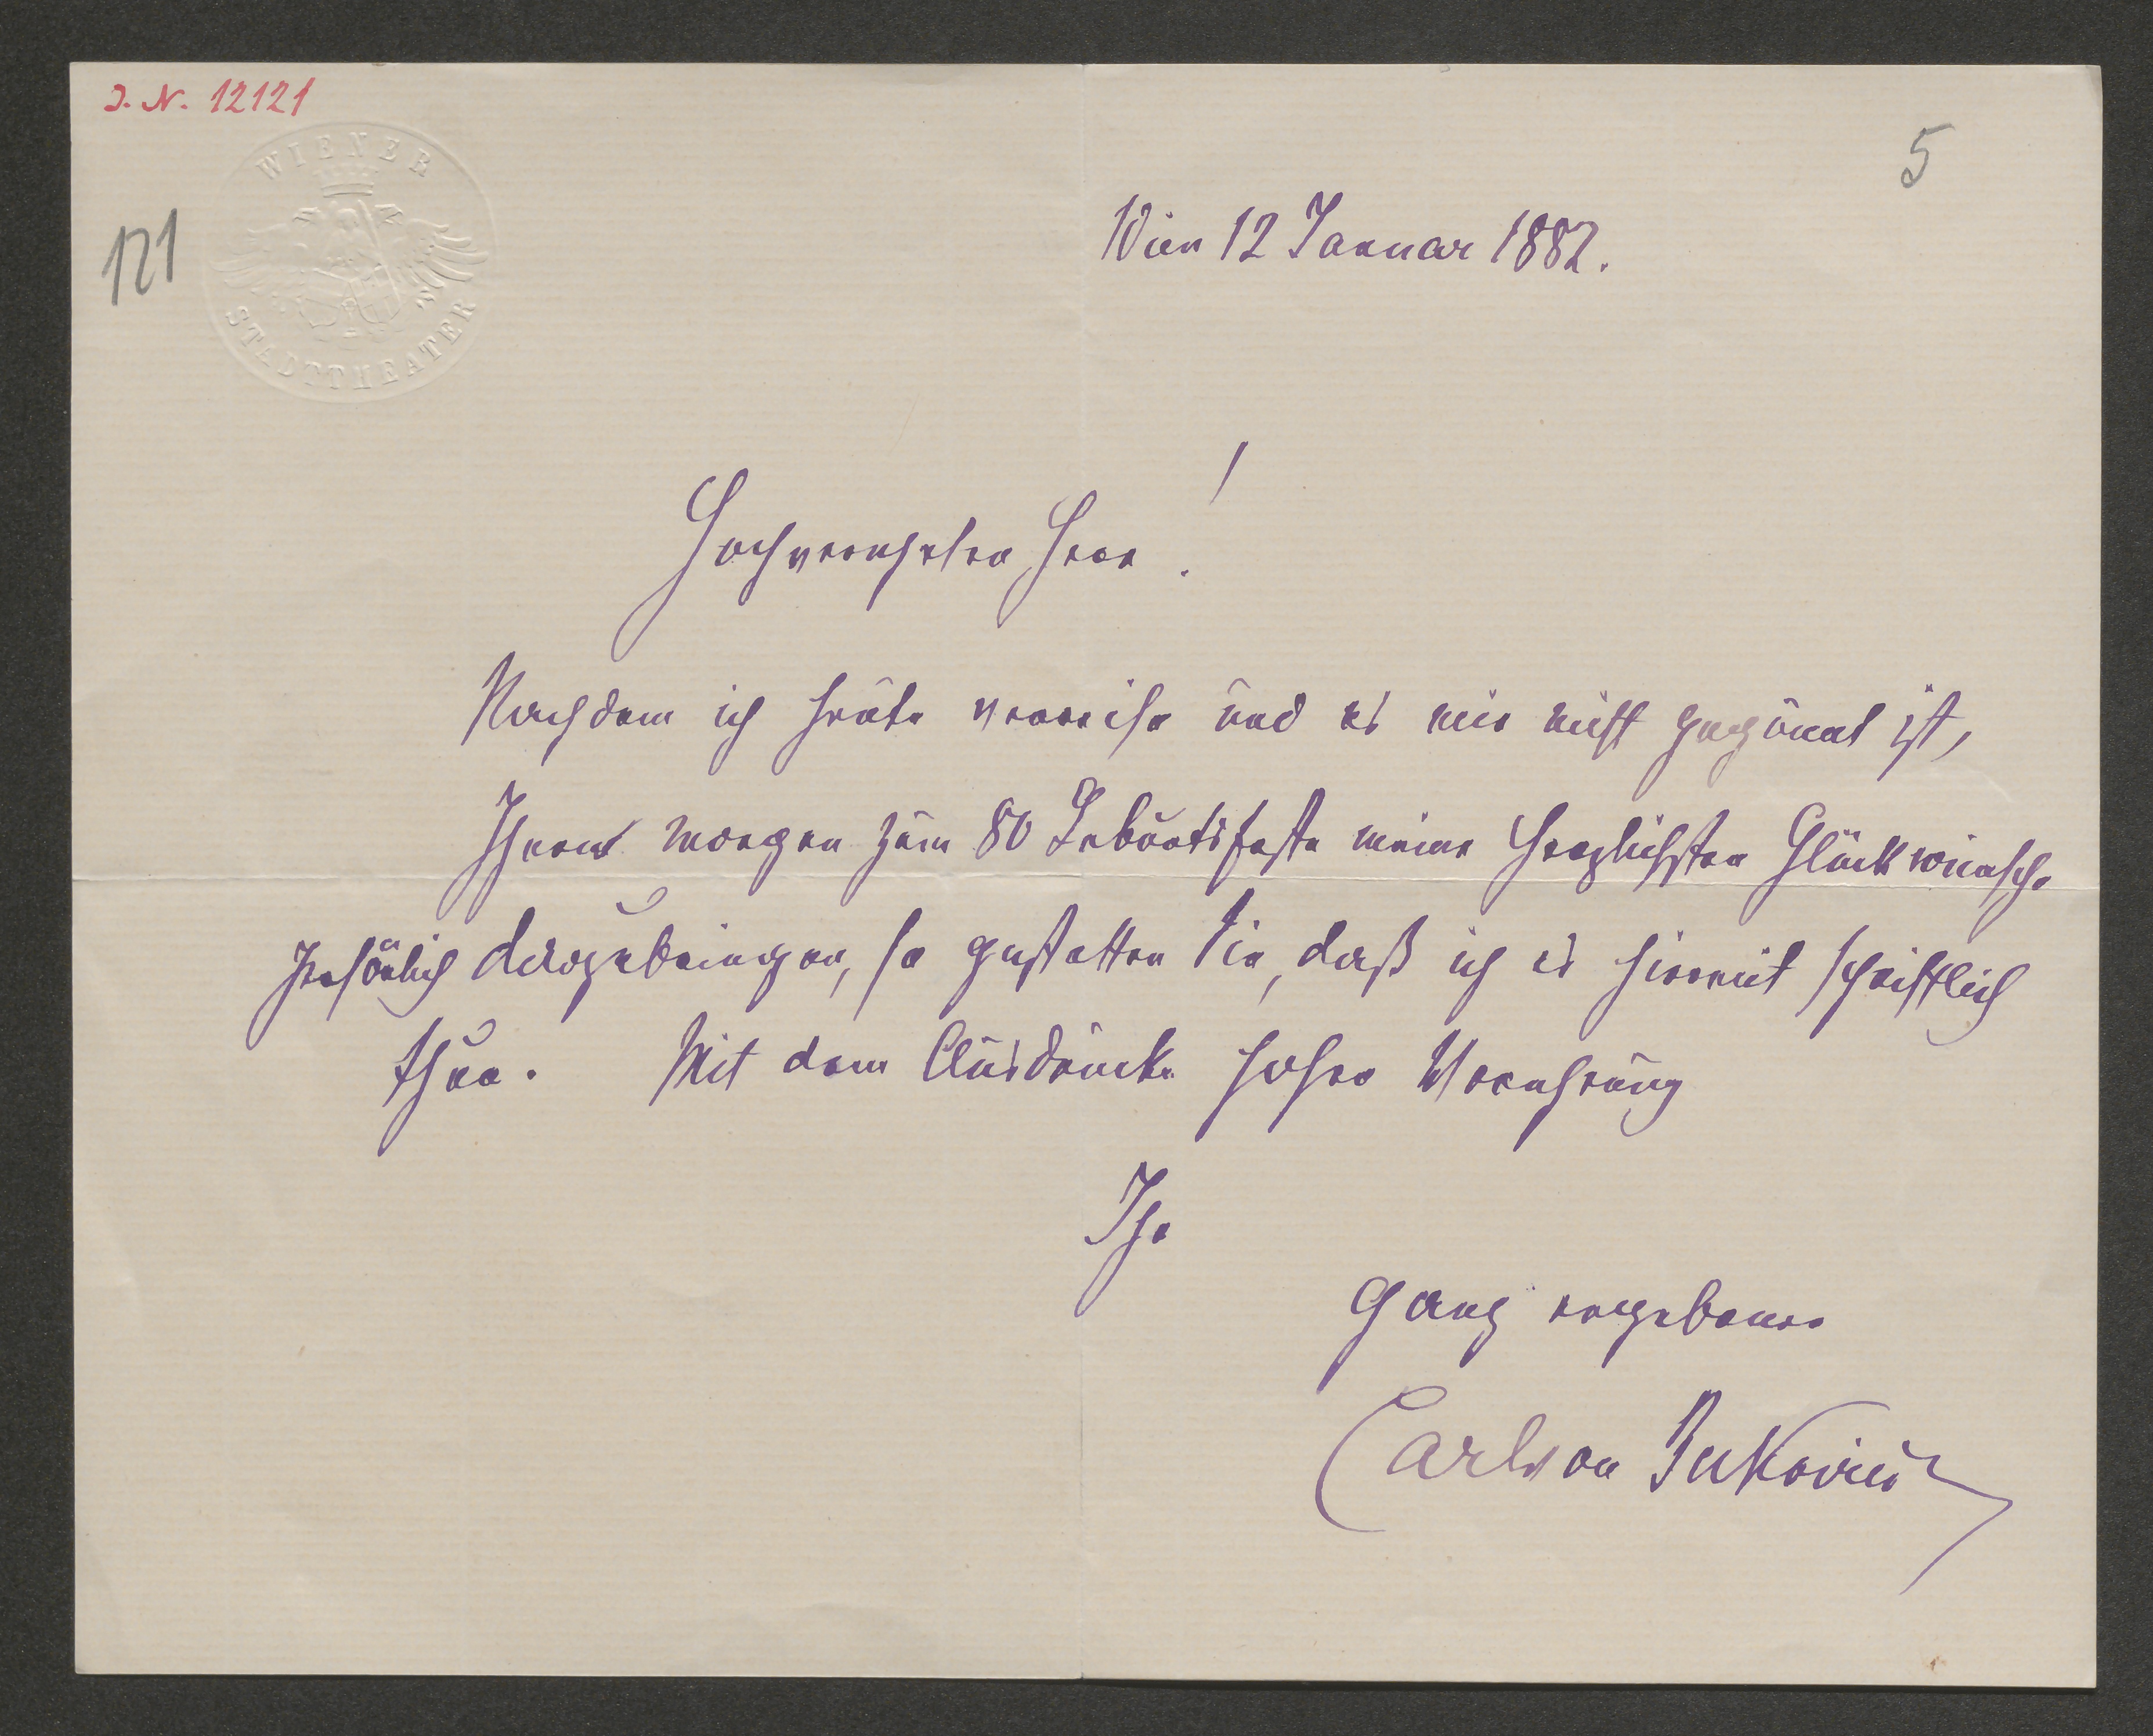 J. N. 12121
5
WIENER
STADTTHEATER
121
Wien 12 Januar 1882.
Hochverehrter Herr!
Nachdem ich heute verreise und es mir nicht gegönnt ist,
Ihnen morgen zum 80 Geburtsfeste meine herzlichsten Glückwünsche
persönlich darzubringen, so gestatten Sie, daß ich es hiermit schriftlich
thue. Mit dem Ausdrucke hoher Verehrung
Ihr
ganz ergebener
Carl von Bukovics